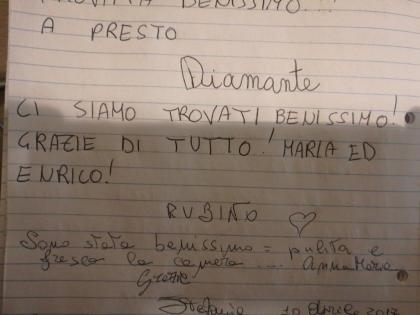 TROVATA BENISSIMO...
A PRESTO
Diamante
CI SIAMO TROVATI BENISSIMO!
GRAZIE DI TUTTO! MARIA ED
ENRICO!
RUBINO ♡
Sono stata benissimo = pulita e
fresca la camera .... AnnaMaria
Grazie
Stefania 10 Aprile 2017